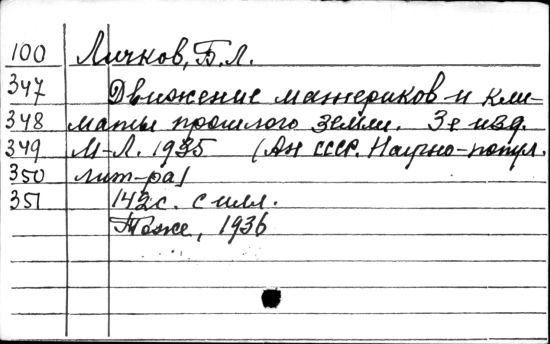 100 Личков, Б.Л.
347 Движение материков и кли-
348 маты прошлого земли. 3е изд.
349 М-Л. 1935 (Ан СССР. Научно-попул.
350 лит-ра)
351 142с. с илл.
Тоже, 1936